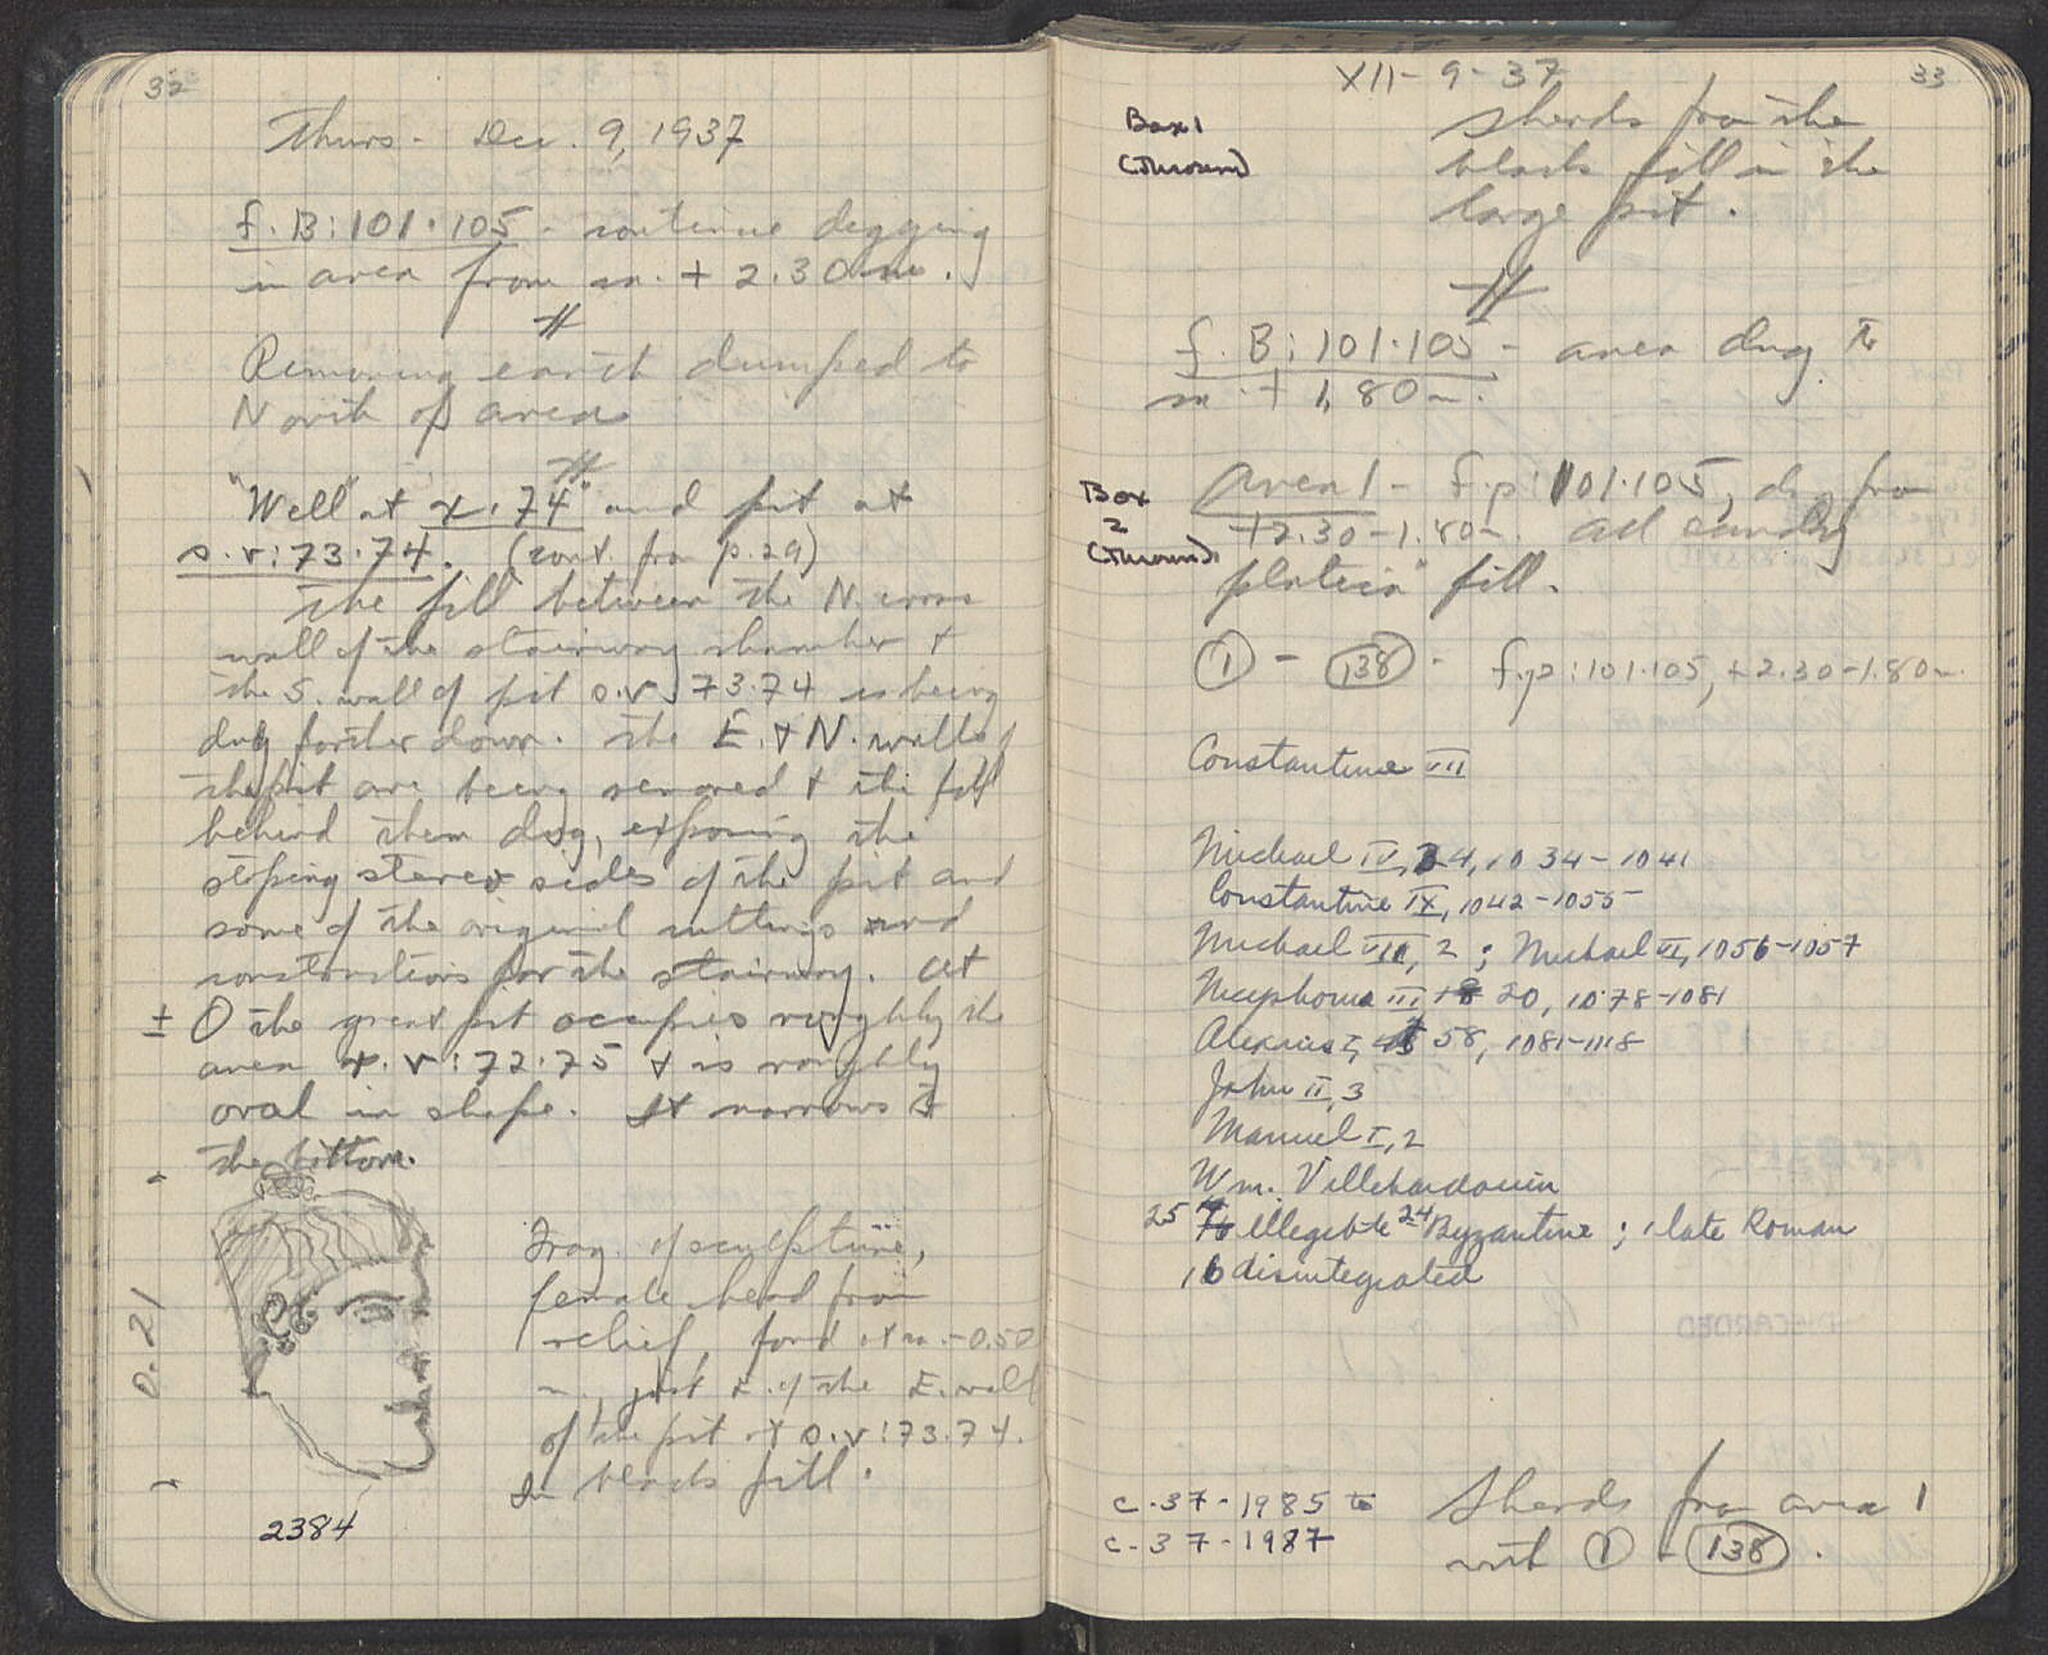 32
Thurs - Dec. 9, 1937
f. B: 101·105 - continue digging
in area from m. + 2.30 m.
Removing earth dumped to
North of area
"Well at x·74" and pit at
s.v:73·74. (cont. from p.29)
The fill between the N. cross
wall of the stairway chamber +
the S. wall of pit s.v:73·74 is being
dug further down. The E. + N. walls of
the pit are being removed + the fill
behind them dug, exposing the
sloping stereo sides of the pit and
some of the original cuttings and
constructions for the stairway. At
± 0 the great pit occupies roughly the
area v:72·75 + is roughly
oval in shape. It narrows to
the bottom.
0.21
Frag. of sculpture,
female head from
relief, found at m. -0.50
m., just E. of the E. wall
of the pit at s.v:73·74.
In black fill.
2384
XII - 9 - 37
33
Box 1
(Thrown)
Sherds from the
black fill in the
large pit.
f. B: 101·105 - area dug to
m. + 1.80 m.
Box
2
(Thrown)
Area 1 - f.p: 101·105, from
+2.30 - 1.80 m. All
platea" fill.
① - 138 - f.p: 101·105, +2.30 - 1.80 m.
Constantine VII
Michael IV, 4, 1034 - 1041
Constantine IX, 1042 - 1055
Michael VII, 2 ; Michael VI, 1056-1057
Nicephorus III 20, 1078-1081
Alexius I, 58, 1081-1118
John II, 3
Manuel I, 2
Wm. Villehardouin
25 illegible 24 Byzantine ; 1 late Roman
16 disintegrated
c-37-1985 to
c-37-1987
Sherds from area 1
with ① - 138.